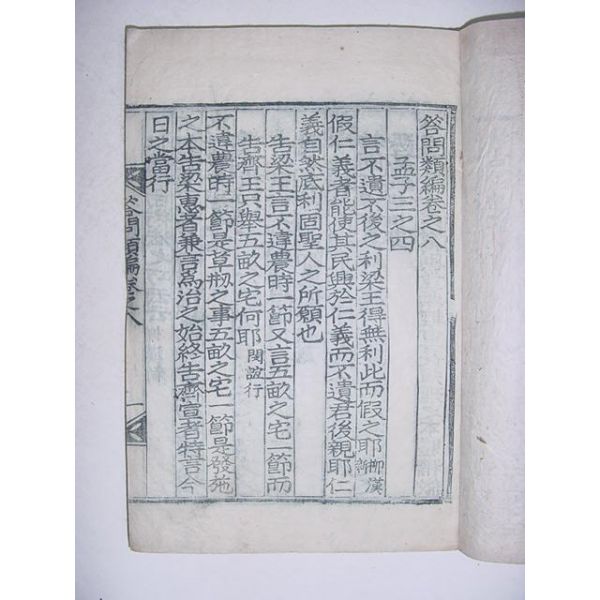 答問類編卷之八
孟子三之四
言不遺不後之利梁王得無利此而假之耶柳漢新
假仁義者能使其民興於仁義而不遺君後親耶仁
義自然底利固聖人之所願也
告梁王言不違農時一節又言五畝之宅一節而
告齊王只舉五畝之宅何耶閔誠行
不違農時一節是草刱之事五畝之宅一節是發施
之本告梁惠者兼言爲治之始終告齊宣者特言今
日之當行
答問類編卷之八
一